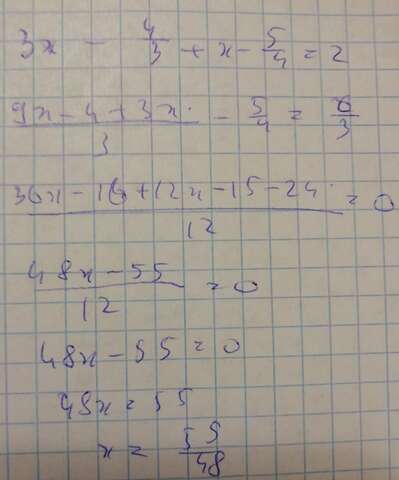 3x - 4/3 + x - 5/4 = 2
(9x - 4 + 3x)/3 - 5/4 = 6/3
(36x - 16 + 12x - 15 - 24)/12 = 0
(48x - 55)/12 = 0
48x - 55 = 0
48x = 55
x = 55/48